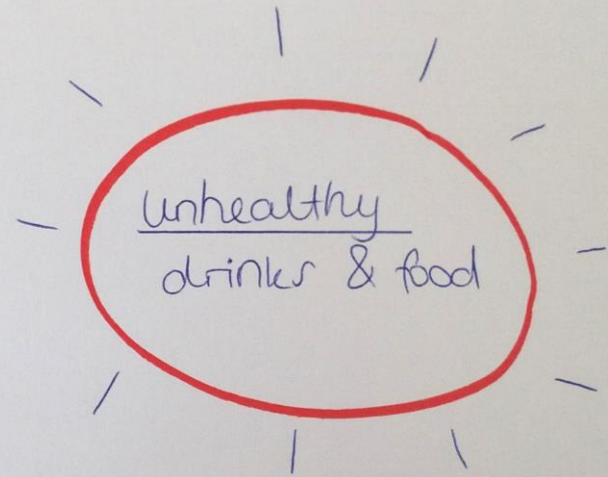 unhealthy
drinks & food